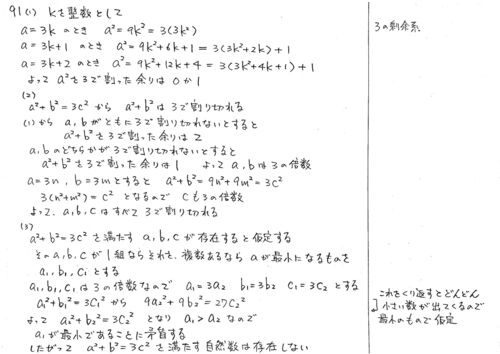 91(1) kを整数として
a=3k のとき a²=9k²=3(3k²)
a=3k+1 のとき a²=9k²+6k+1=3(3k²+2k)+1
a=3k+2 のとき a²=9k²+12k+4=3(3k²+4k+1)+1
よって a²を3で割った余りは 0か1
(2)
a²+b²=3c² から a²+b² は 3で割り切れる
(1)から a,bがともに3で割り切れないとすると
a²+b²を3で割った余りは 2
a,bのどちらかが3で割り切れないとすると
a²+b²を3で割った余りは 1 よって a,bは3の倍数
a=3n, b=3mとすると a²+b²=9n²+9m²=3c²
3(n²+m²)=c² となるので cも3の倍数
よって、a,b,cはすべて3で割り切れる
(3)
a²+b²=3c² を満たす a,b,cが存在すると仮定する
そのa,b,cが1組ならそれを、複数あるなら aが最小になるものを
a₁,b₁,c₁とする
a₁,b₁,c₁は3の倍数なので a₁=3a₂ b₁=3b₂ c₁=3c₂ とする
a₁²+b₁²=3c₁² から 9a₂²+9b₂²=27c₂²
よって a₂²+b₂²=3c₂² となり a₁>a₂ なので
a₁が最小であることに矛盾する
したがって a²+b²=3c² を満たす自然数は存在しない
3の剰余系
これをくり返すとどんどん
小さい数が出てくるので
最小のもので仮定